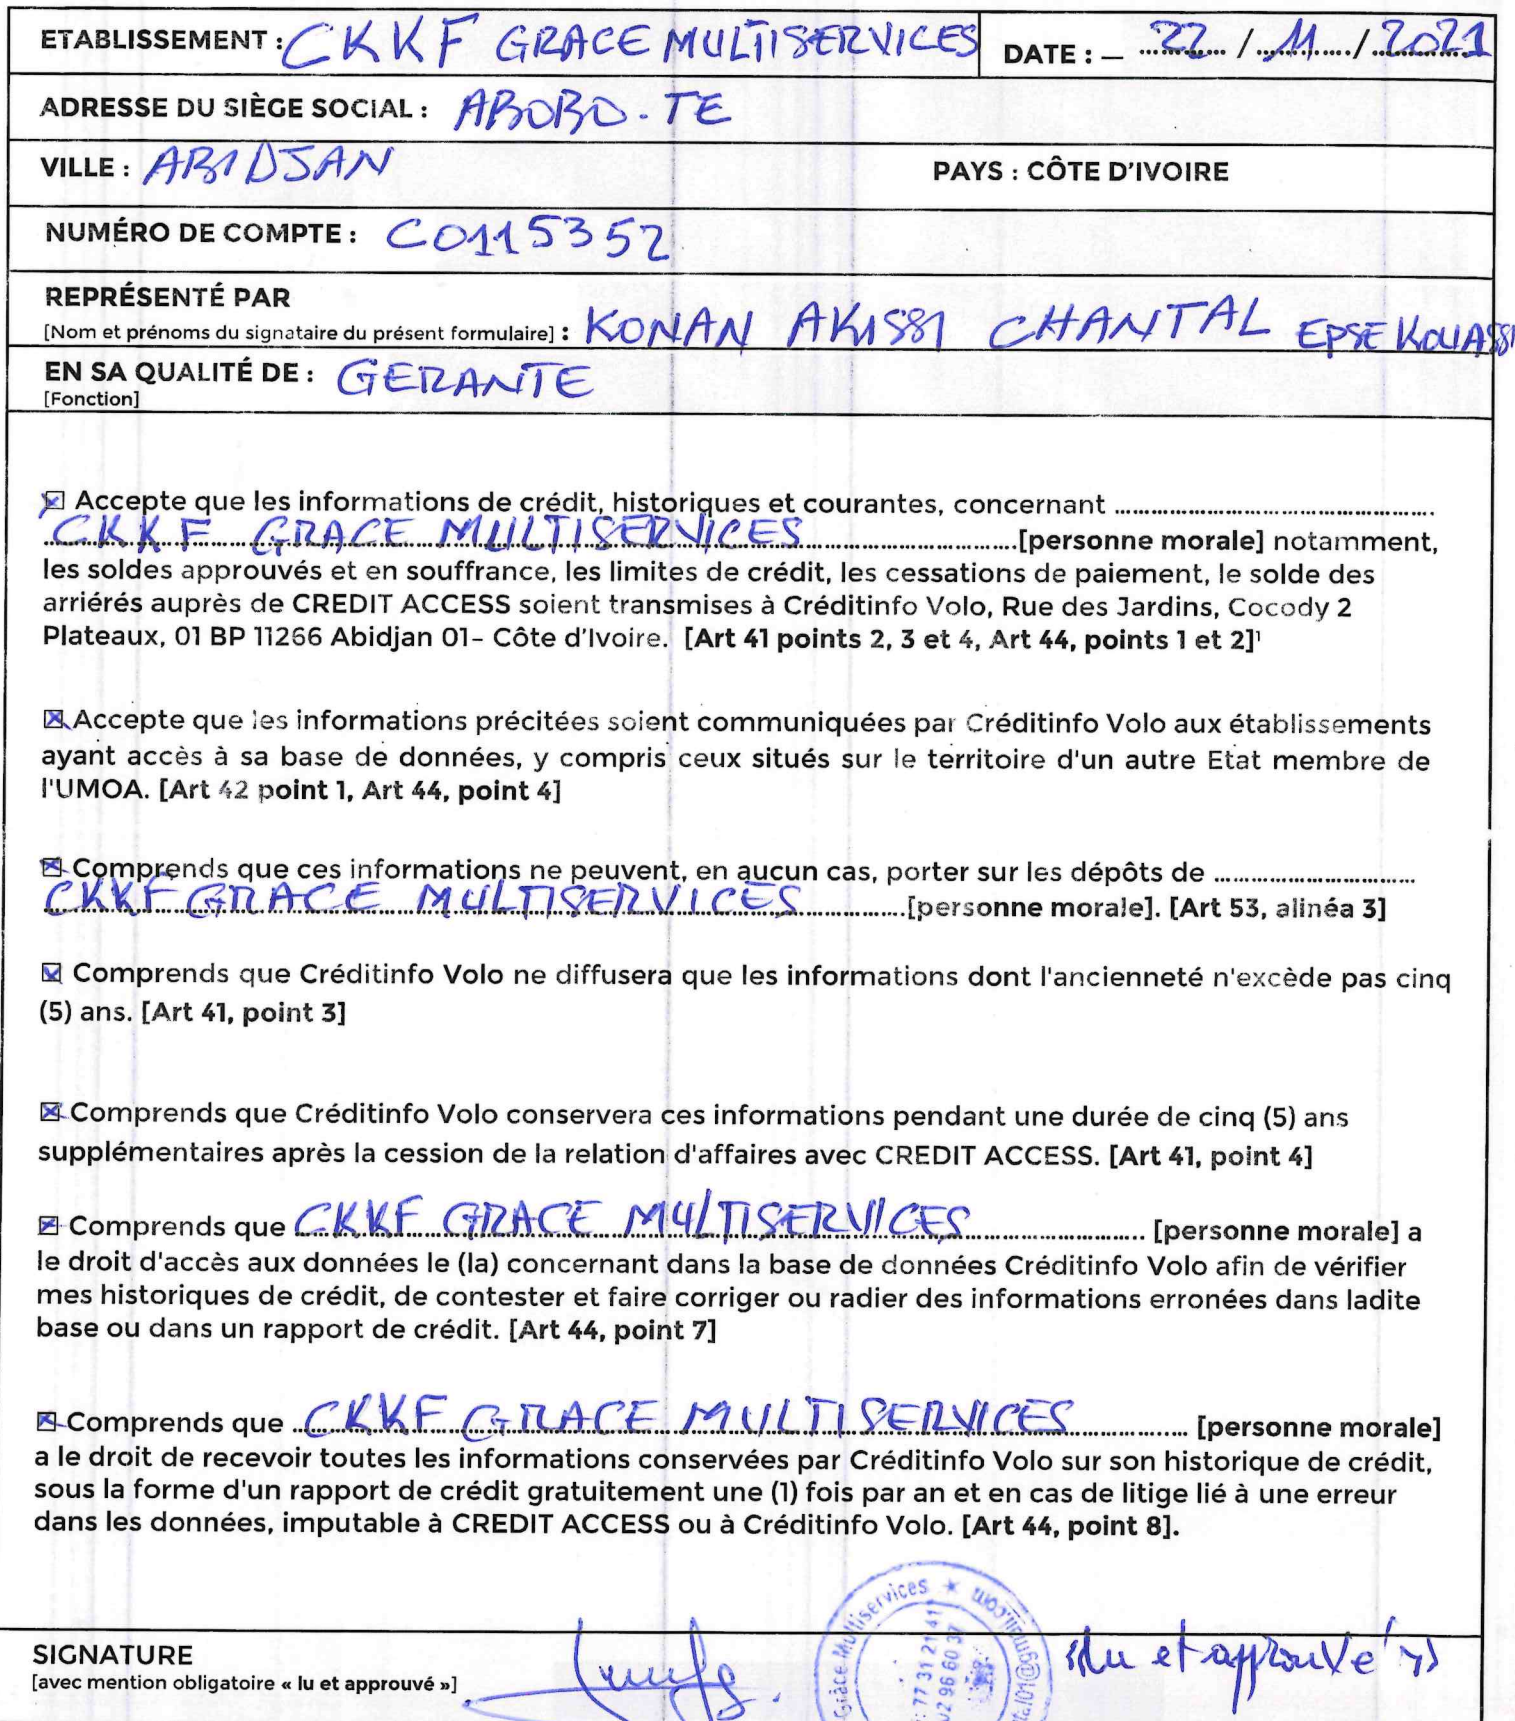 ETABLISSEMENT : CKKF GRACE MULTISERVICES DATE : – 22 / 11 / 2021
ADRESSE DU SIÈGE SOCIAL : ABOBO-TE
VILLE : ABIDJAN PAYS : CÔTE D'IVOIRE
NUMÉRO DE COMPTE : C0115352
REPRÉSENTÉ PAR
[Nom et prénoms du signataire du présent formulaire] : KONAN AKISSI CHANTAL EPSE KOUASSI
EN SA QUALITÉ DE : GERANTE
[Fonction]
☒ Accepte que les informations de crédit, historiques et courantes, concernant ..........
CKKF GRACE MULTISERVICES ..........[personne morale] notamment,
les soldes approuvés et en souffrance, les limites de crédit, les cessations de paiement, le solde des
arriérés auprès de CREDIT ACCESS soient transmises à Créditinfo Volo, Rue des Jardins, Cocody 2
Plateaux, 01 BP 11266 Abidjan 01– Côte d'Ivoire. [Art 41 points 2, 3 et 4, Art 44, points 1 et 2]¹
☒ Accepte que les informations précitées soient communiquées par Créditinfo Volo aux établissements
ayant accès à sa base de données, y compris ceux situés sur le territoire d'un autre Etat membre de
l'UMOA. [Art 42 point 1, Art 44, point 4]
☒ Comprends que ces informations ne peuvent, en aucun cas, porter sur les dépôts de ..........
CKKF GRACE MULTISERVICES ..........[personne morale]. [Art 53, alinéa 3]
☒ Comprends que Créditinfo Volo ne diffusera que les informations dont l'ancienneté n'excède pas cinq
(5) ans. [Art 41, point 3]
☒ Comprends que Créditinfo Volo conservera ces informations pendant une durée de cinq (5) ans
supplémentaires après la cession de la relation d'affaires avec CREDIT ACCESS. [Art 41, point 4]
☒ Comprends que CKKF GRACE MULTISERVICES .......... [personne morale] a
le droit d'accès aux données le (la) concernant dans la base de données Créditinfo Volo afin de vérifier
mes historiques de crédit, de contester et faire corriger ou radier des informations erronées dans ladite
base ou dans un rapport de crédit. [Art 44, point 7]
☒ Comprends que CKKF GRACE MULTISERVICES .......... [personne morale]
a le droit de recevoir toutes les informations conservées par Créditinfo Volo sur son historique de crédit,
sous la forme d'un rapport de crédit gratuitement une (1) fois par an et en cas de litige lié à une erreur
dans les données, imputable à CREDIT ACCESS ou à Créditinfo Volo. [Art 44, point 8].
SIGNATURE
[avec mention obligatoire « lu et approuvé »]
Grâce Multiservices
77 31 21 41
02 96 60 37
@gmail.com
«lu et approuvé»